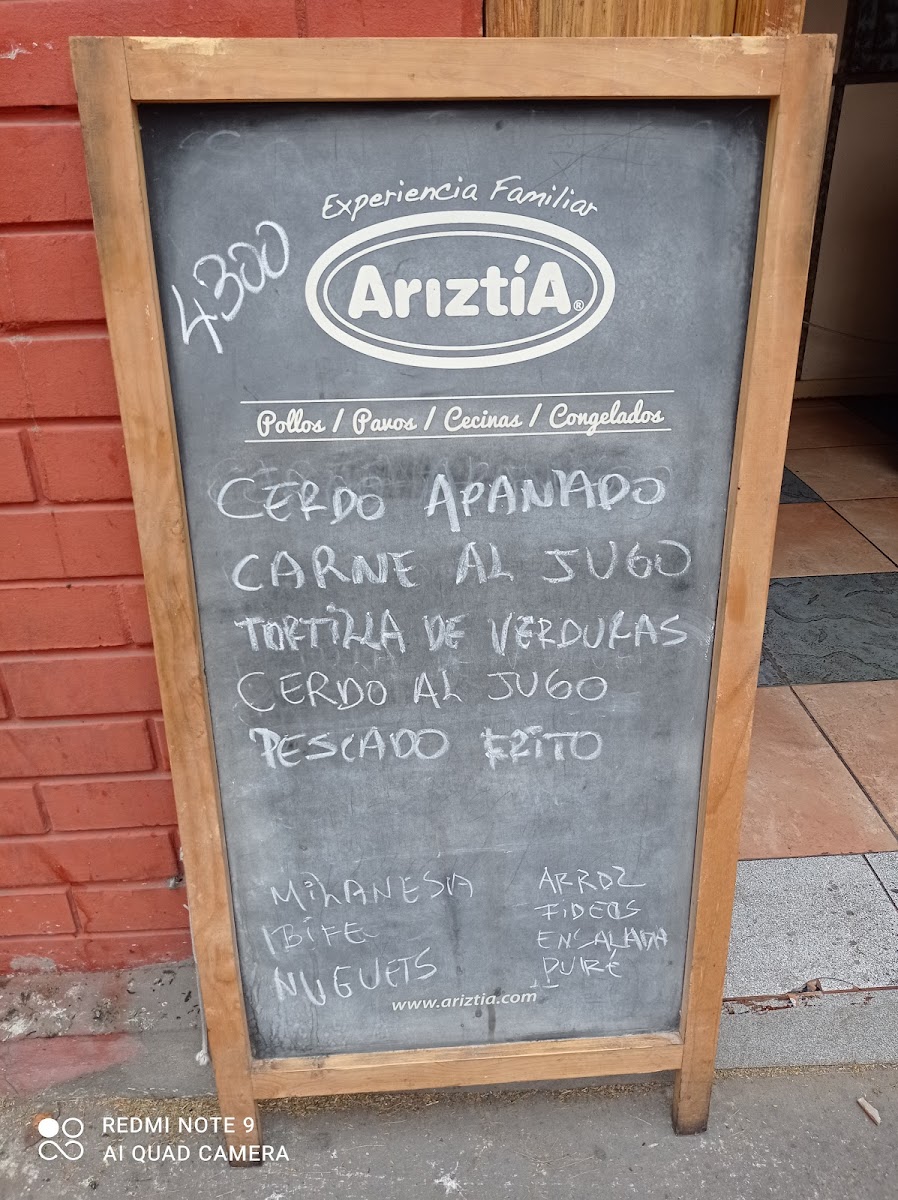 Experiencia Familiar
4300
AriztíA®
Pollos / Pavos / Cecinas / Congelados
CERDO APANADO
CARNE AL JUGO
TORTILLA DE VERDURAS
CERDO AL JUGO
PESCADO FRITO
MILANESA
BIFE
NUGUETS
ARROZ
FIDEOS
ENSALADA
PURÉ
www.ariztia.com
REDMI NOTE 9
AI QUAD CAMERA